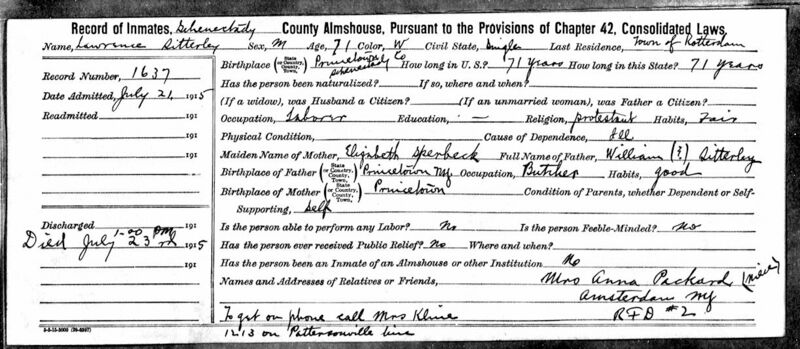 Record of Inmates, Schenectady County Almshouse, Pursuant to the Provisions of Chapter 42, Consolidated Laws.
Name, Lawrence Sitterley Sex, M Age, 71 Color, W Civil State, Single Last Residence, Town of Rotterdam
Record Number, 1637
Date Admitted, July 21, 1915
Readmitted 191
191
191
191
191
Discharged 191
1-00 PM
Died July 23rd 1915
Birthplace (State or Country, County, Town,) Princetown Schenectady Co How long in U.S.? 71 Years How long in this State? 71 Years
Has the person been naturalized? If so, where and when?
(If a widow), was Husband a Citizen? (If an unmarried woman), was Father a Citizen?
Occupation, Laborer Education, — Religion, protestant Habits, Fair
Physical Condition, Cause of Dependence, Ill
Maiden Name of Mother, Elizabeth Sperbeck Full Name of Father, William (?) Sitterley
Birthplace of Father (State or Country, County, Town,) Princetown NY Occupation, Butcher Habits, good
Birthplace of Mother (State or Country, County, Town,) Princetown Condition of Parents, whether Dependent or Self-
Supporting, Self
Is the person able to perform any Labor? No Is the person Feeble-Minded? No
Has the person ever received Public Relief? No Where and when?
Has the person been an Inmate of an Almshouse or other Institution No
Names and Addresses of Relatives or Friends, Mrs Anna Packard (niece)
Amsterdam NY
RFD #2
To get on phone call Mrs Kline
1213 on Pattersonville line